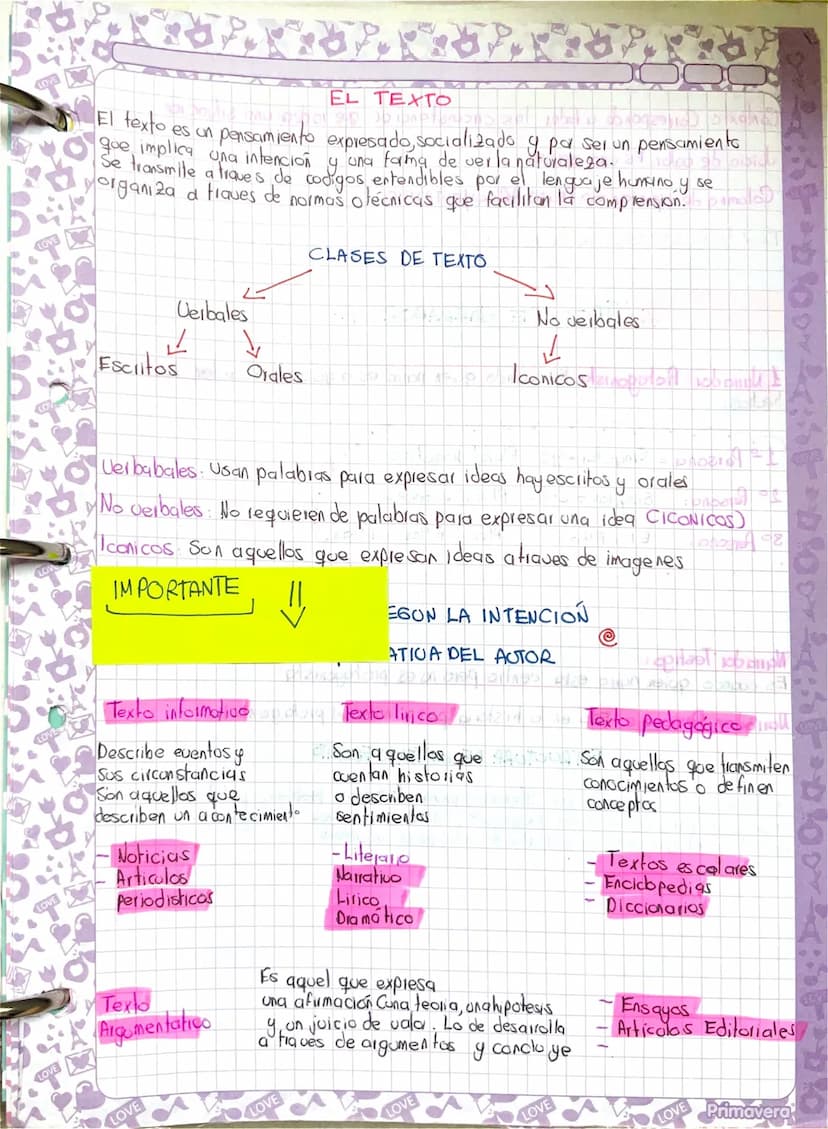 EL TEXTO
El texto es un pensamiento expresado, socializado y por ser un pensamiento
que implica una intención y una forma de ver la naturaleza.
Se transmite atraves de codigos entendibles por el lenguaje humano, y se
organiza a traves de normas o técnicas que facilitan la comprension.
CLASES DE TEXTO
Verbales
No verbales
Escritos
Orales
Iconicos
Verbabales: Usan palabras para expresar ideas hay escritos y orales
No verbales: No requieren de palabras para expresar una idea (ICONICOS)
Iconicos: Son aquellos que expresan ideas atraves de imagenes
IMPORTANTE
EGUN LA INTENCIÓN
ATIVA DEL AUTOR
Texto informativo
Texto lirico
Texto pedagógico
Describe eventos y
sus circunstancias
Son aquellos que
describen un acontecimiento
Son aquellos que
cuentan historias
o describen
sentimientos
Son aquellos que transmiten
conocimientos o definen
conceptos
- Noticias
- Articulos
periodisticos
- Literario
Narrativo
Lirico
Dramático
- Textos escolares
- Enciclopedias
- Diccionarios
Texto
Argumentativo
Es aquel que expresa
una afirmación (una teoria, una hipotesis
y un juicio de valor. Lo desarrolla
a traves de argumentos y concluye
- Ensayos
- Artículos Editoriales
-
LOVE
LOVE
LOVE
LOVE
LOVE
Primavera